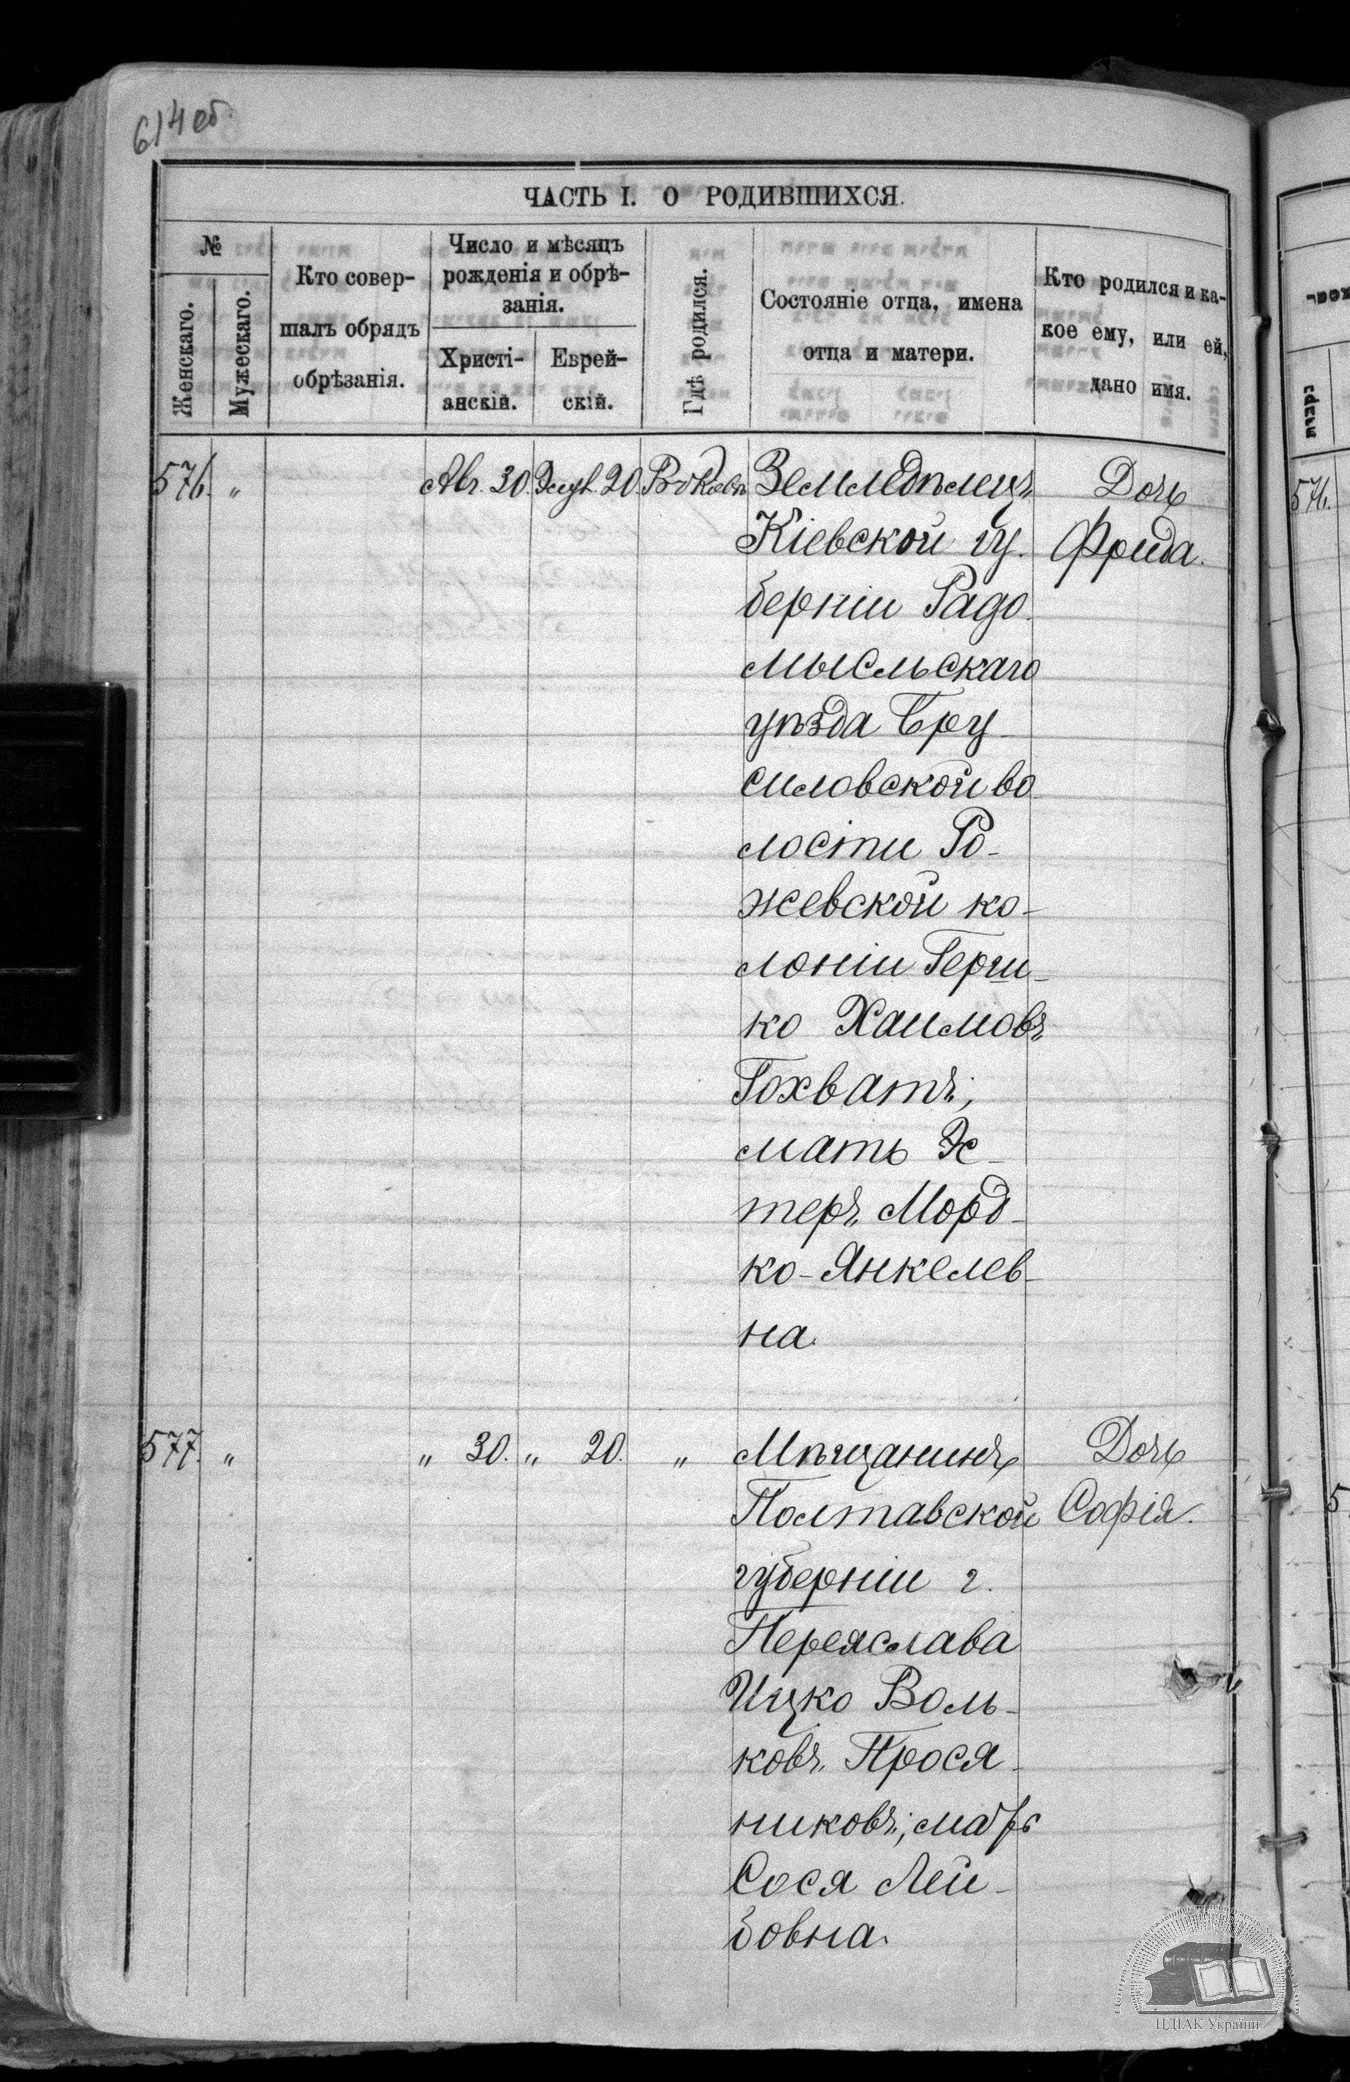 614 об.
ЧАСТЬ I. О РОДИВШИХСЯ.
№
Женскаго.
Мужескаго.
Кто совер-
шалъ обрядъ
обрѣзанія.
Число и мѣсяцъ
рожденія и обрѣ-
занія.
Христі-
анскій.
Еврей-
скій.
Гдѣ родился.
Состояніе отца, имена
отца и матери.
Кто родился и ка-
кое ему, или ей,
дано имя.
576. „ Авг. 30. 20 Землѣдѣлецъ Дочь
Кіевской гу- Фрида.
берніи Радо-
мысльскаго
уѣзда Бру-
силовской во-
лости Ро-
жевской ко-
лоніи Герш-
ко Хаимовъ
Гохватъ,
мать Эс-
теръ Морд-
ко-Янкелев-
на.
577. „ „ 30. „ 20. „ Мѣщанинъ Дочь
Полтавской Софія.
губерніи г.
Переяслава
Ицко Воль-
ковъ Прося-
никовъ, мать
Сося Лей-
бовна.
576.
5
ЦДІАК України